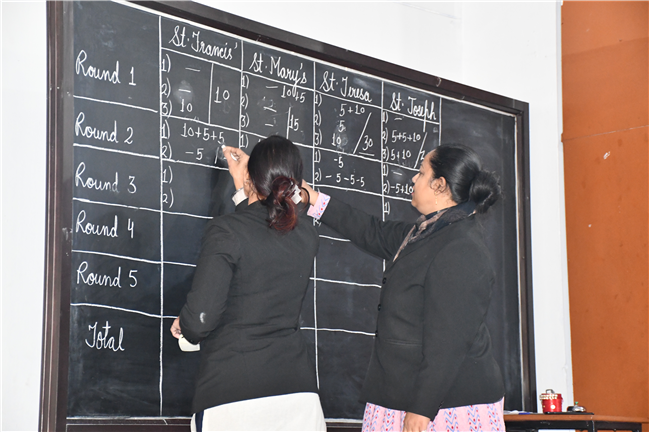 St. Francis' St. Mary's St. Teresa St. Joseph
Round 1
1) — 1) — 10+5 1) 5+10 1) —
2) — 10 2) 2) 5 2) 5+5+10
3) 10 3) — 15 3) 10 30 3) 5+10
Round 2
1) 10+5+5 1) 1) -5 1) —
2) -5 2) -5-5-5 2) -5+10
Round 3
1) 1)
2)
Round 4
Round 5
Total